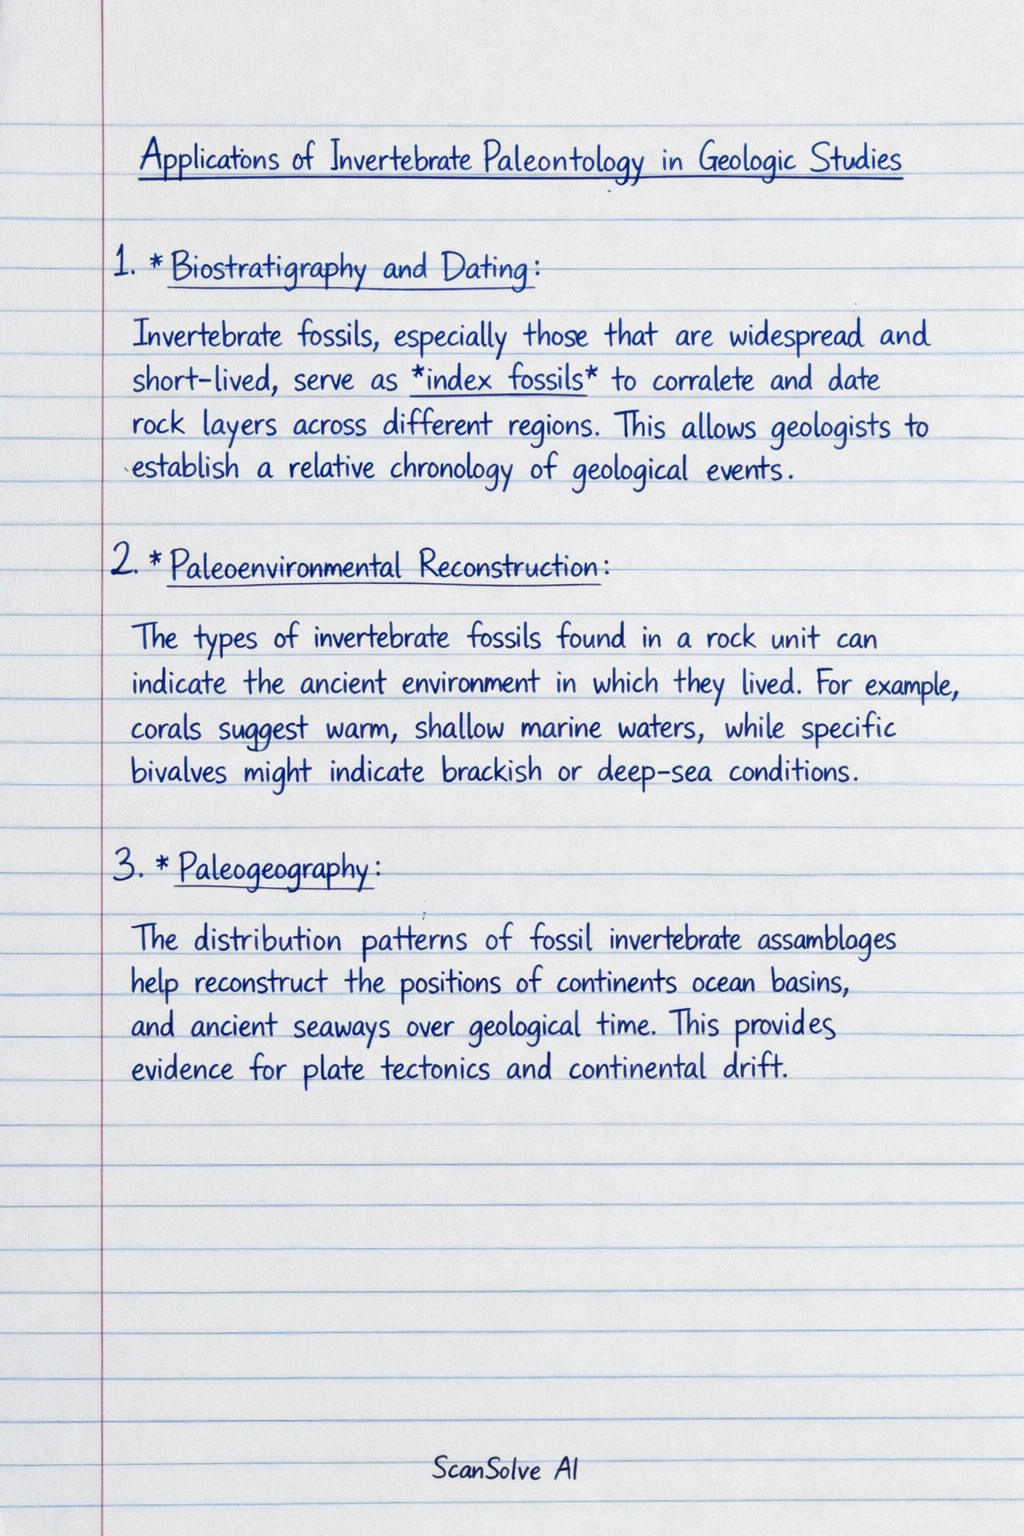 Applications of Invertebrate Paleontology in Geologic Studies
1. * Biostratigraphy and Dating:
Invertebrate fossils, especially those that are widespread and
short-lived, serve as *index fossils* to corralete and date
rock layers across different regions. This allows geologists to
establish a relative chronology of geological events.
2. * Paleoenvironmental Reconstruction:
The types of invertebrate fossils found in a rock unit can
indicate the ancient environment in which they lived. For example,
corals suggest warm, shallow marine waters, while specific
bivalves might indicate brackish or deep-sea conditions.
3. * Paleogeography:
The distribution patterns of fossil invertebrate assambloges
help reconstruct the positions of continents ocean basins,
and ancient seaways over geological time. This provides
evidence for plate tectonics and continental drift.
ScanSolve AI